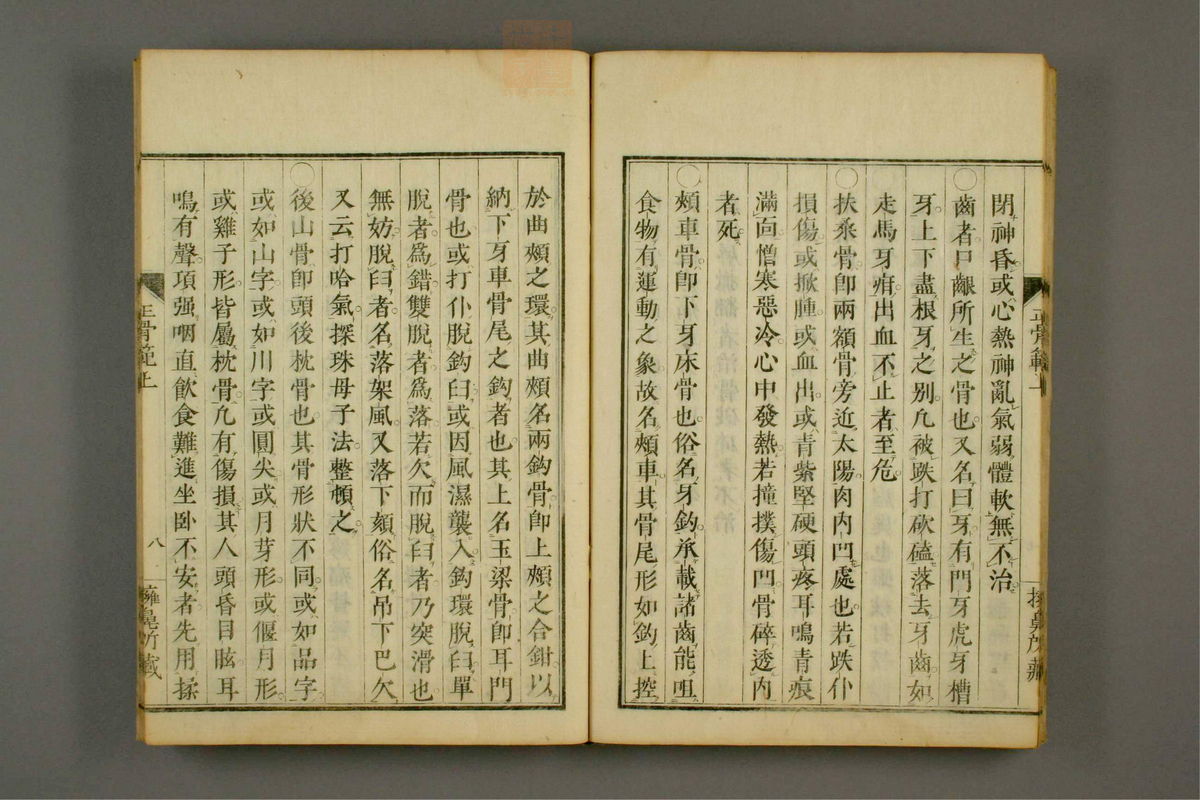 閉神昏或心熱神亂氣弱體軟無不治
○齒者口齦所生之骨也又名曰牙有門牙虎牙槽
牙上下盡根牙之别凡被跌打砍磕落去牙齒如
走馬牙疳出血不止者至危
○扶桒骨卽兩額骨旁近太陽肉内凹處也若跌仆
損傷或掀腫或血出或青紫堅硬頭疼耳鳴青痕
滿向憎寒惡冷心中發熱若撞撲傷凹骨碎透内
者死
○頰車骨卽下牙床骨也俗名牙鈎承載諸齒能咀
食物有運動之象故名頰車其骨尾形如鈎上控
正骨範上
於曲頰之環其曲頰名兩鈎骨卽上頰之合鉗以
納下牙車骨尾之鈎者也其上名玉梁骨卽耳門
骨也或打仆脫鈎臼或因風濕襲入鈎環脫臼單
脫者爲錯雙脫者爲落若欠而脫臼者乃突滑也
無妨脫臼者名落架風又落下頦俗名吊下巴欠
又云打哈氣探珠母子法整頓之
○後山骨卽頭後枕骨也其骨形狀不同或如品字
或如山字或如川字或圓尖或月芽形或偃月形
或雞子形皆屬枕骨凡有傷損其人頭昏目眩耳
鳴有聲項强咽直飲食難進坐卧不安者先用揉
正骨範上
八
擁鼻所藏